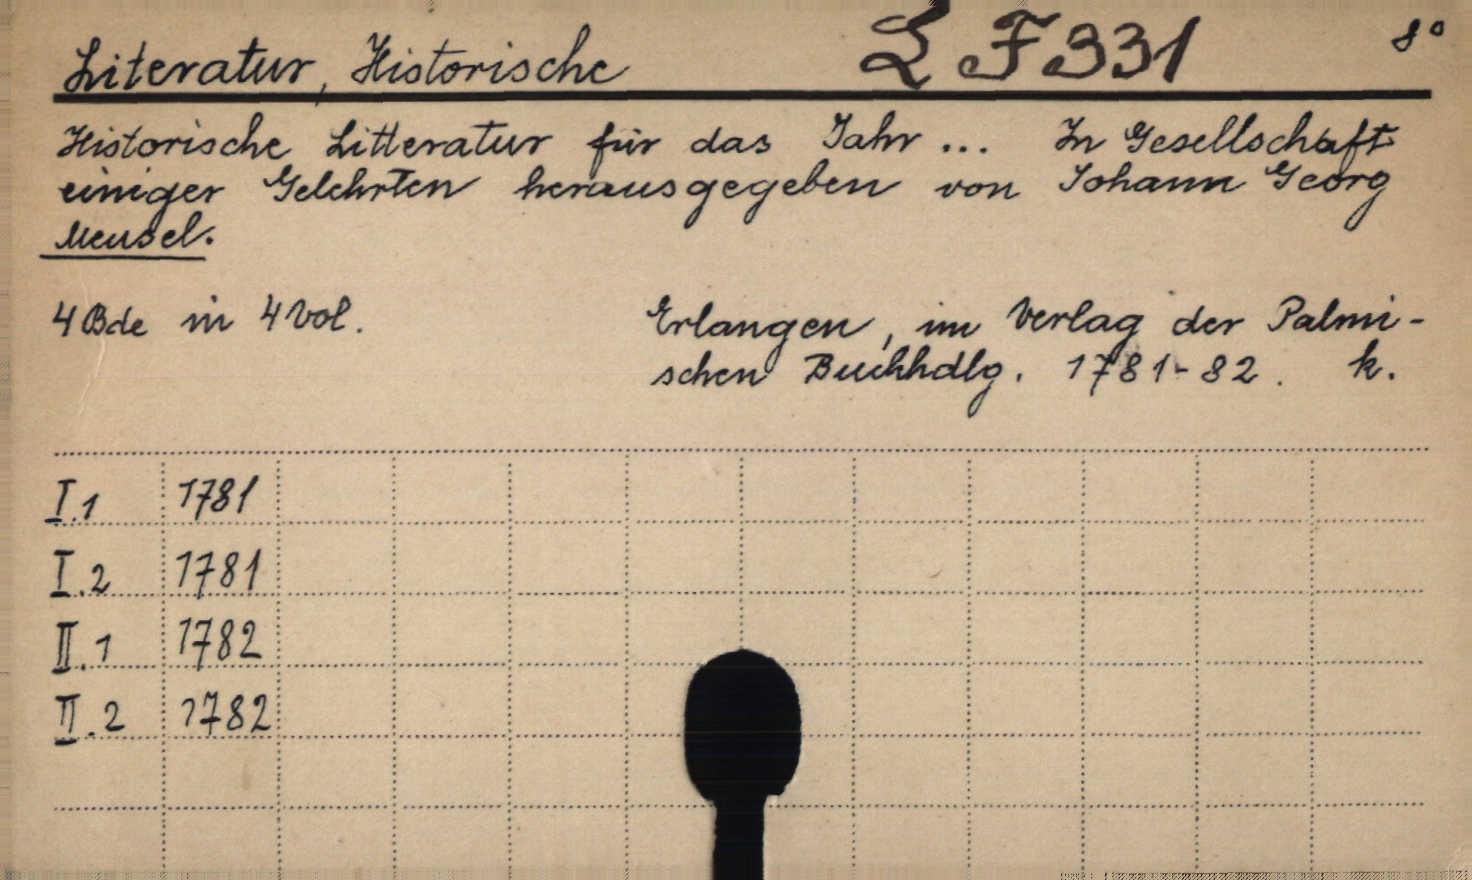 Literatur, Historische L F 331 8°
Historische Litteratur für das Jahr ... In Gesellschaft
einiger Gelehrten herausgegeben von Johann Georg
Meusel.
4 Bde in 4 Vol. Erlangen, im Verlag der Palmi-
schen Buchhdlg. 1781-82. k.
I.1 1781
I.2 1781
II.1 1782
II.2 1782